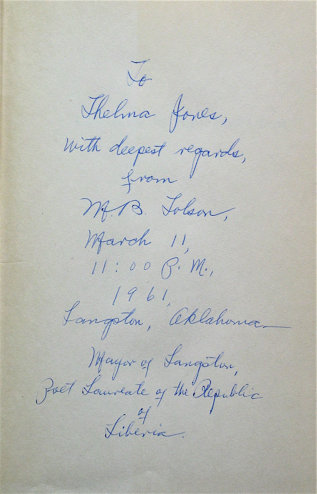 To
Thelma Jones,
with deepest regards,
from
M. B. Tolson,
March 11,
11:00 P. M.,
1961,
Langston, Oklahoma
Mayor of Langston,
Poet Laureate of the Republic
of
Liberia.